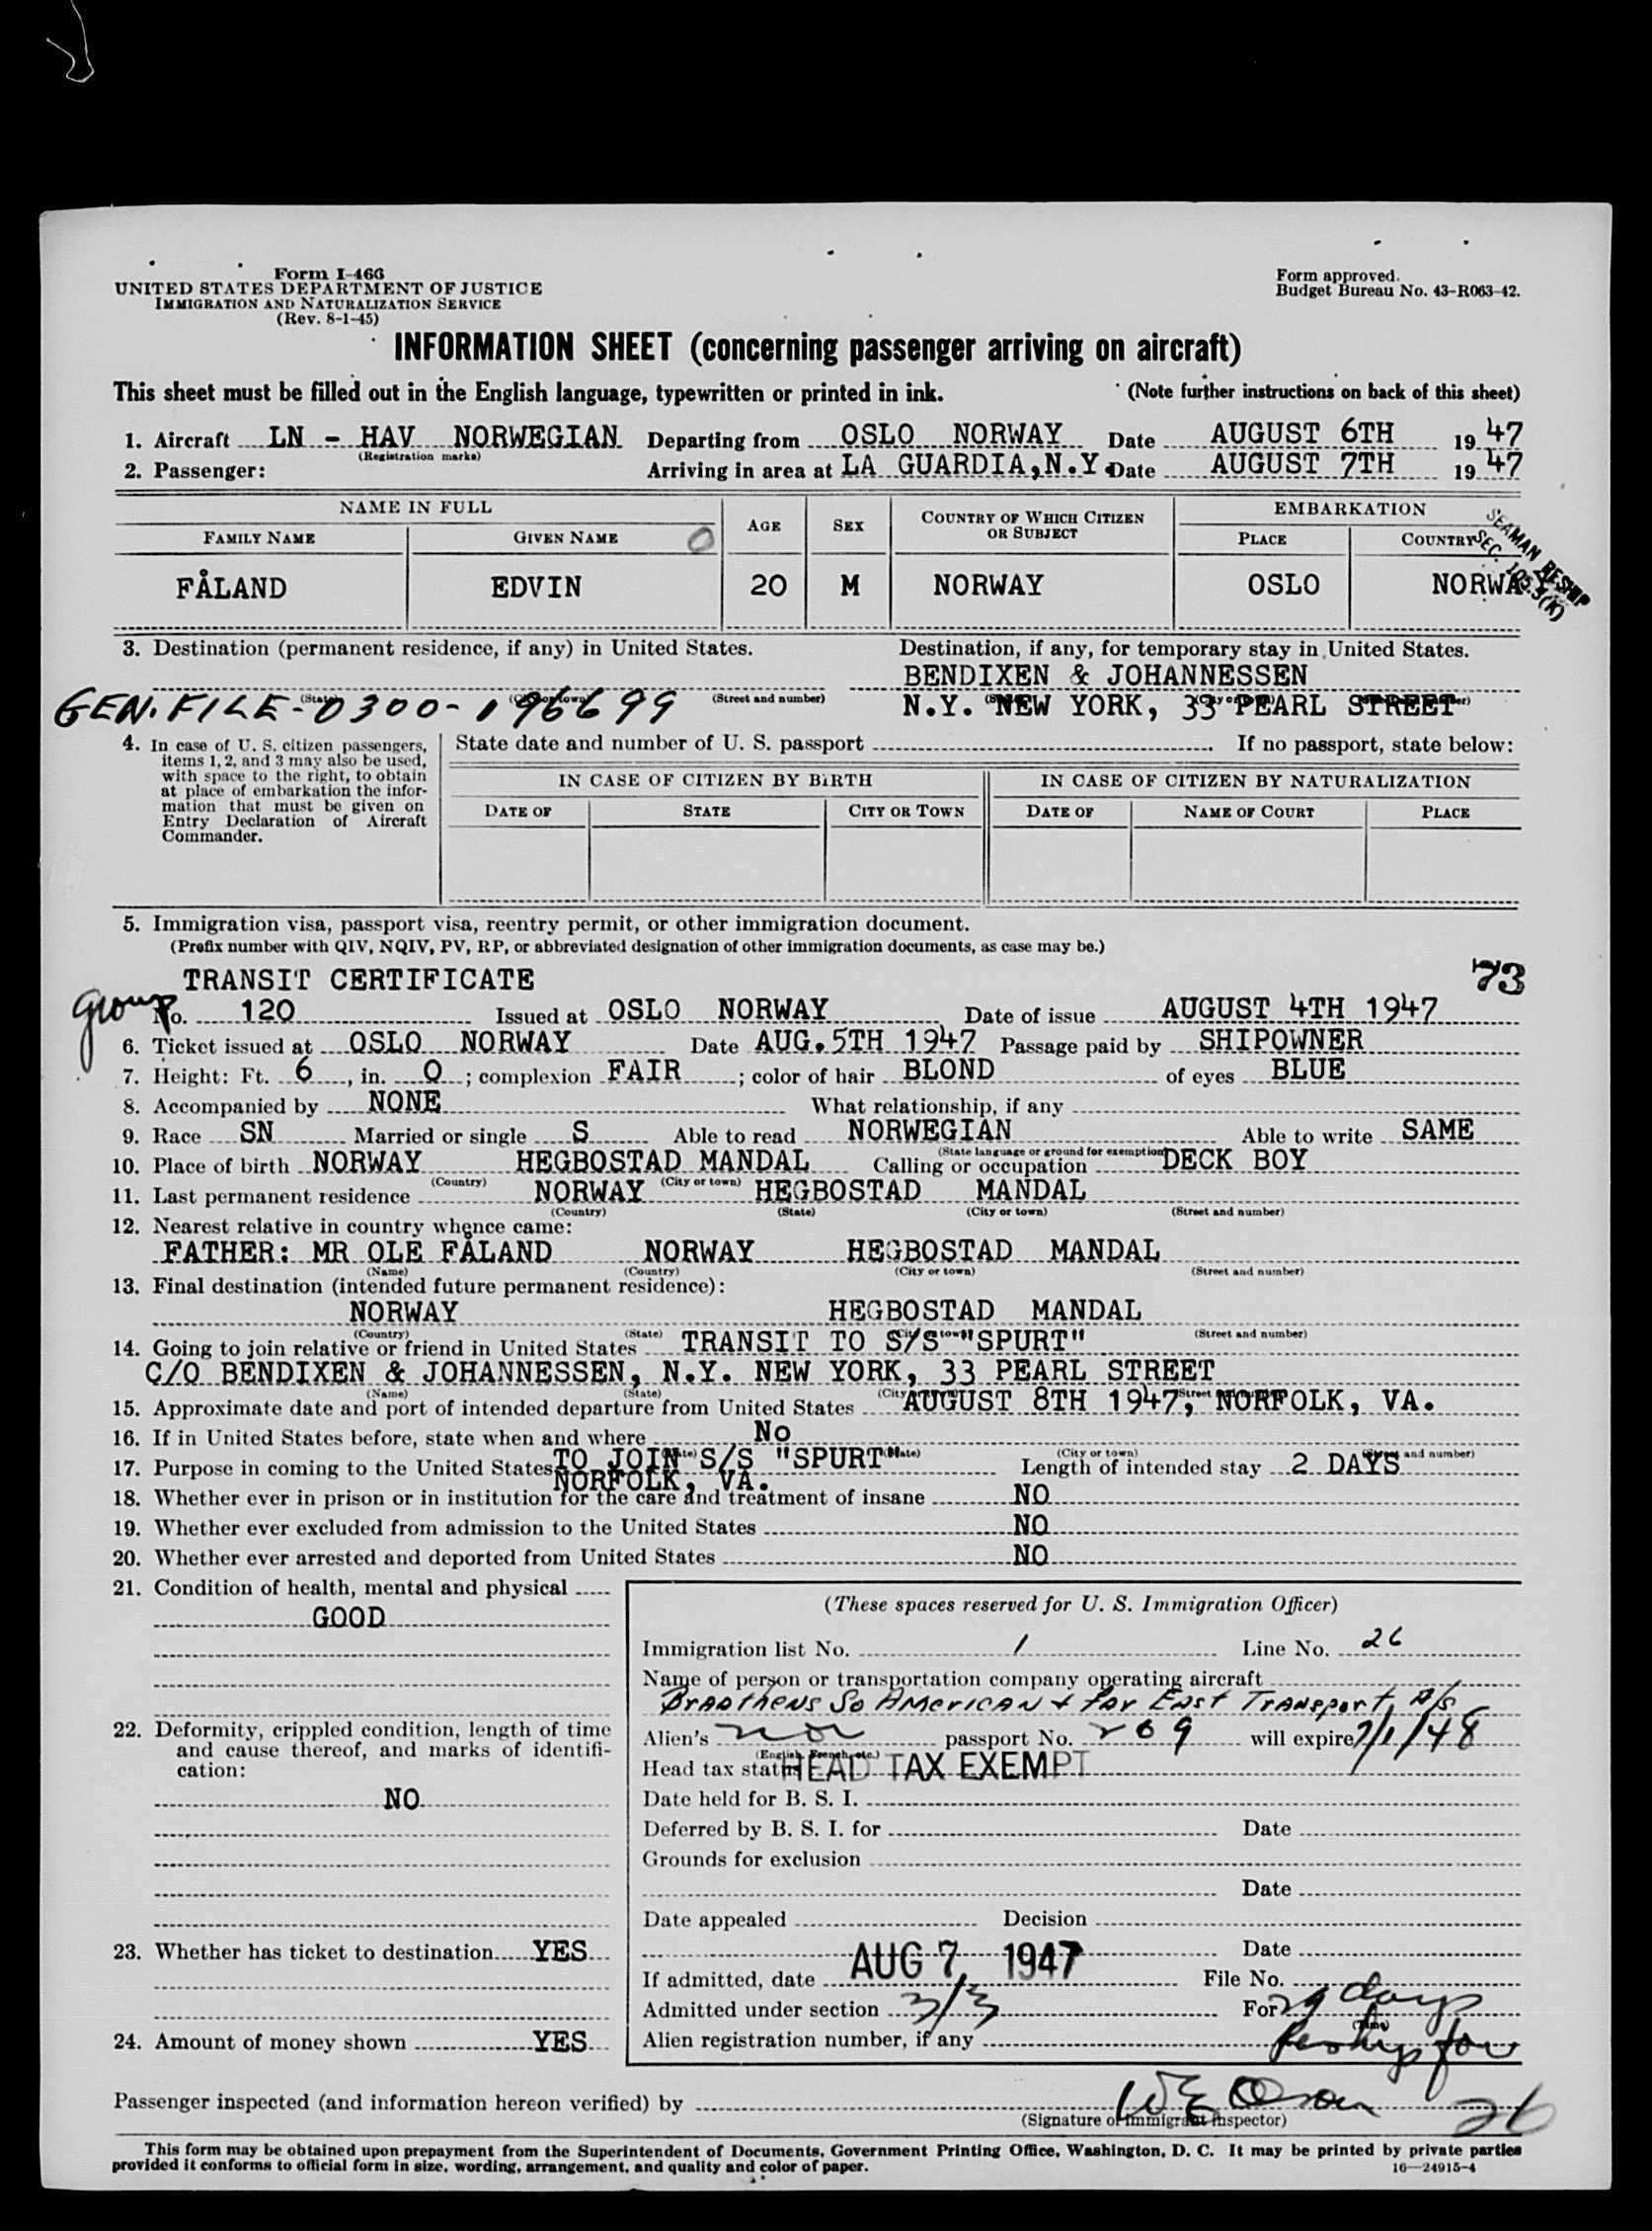 Form I-466
UNITED STATES DEPARTMENT OF JUSTICE
IMMIGRATION AND NATURALIZATION SERVICE
(Rev. 8-1-45)
Form approved.
Budget Bureau No. 43-R063-42.
INFORMATION SHEET (concerning passenger arriving on aircraft)
This sheet must be filled out in the English language, typewritten or printed in ink. (Note further instructions on back of this sheet)
1. Aircraft LN - HAV NORWEGIAN Departing from OSLO NORWAY Date AUGUST 6TH 1947
(Registration marks)
2. Passenger: Arriving in area at LA GUARDIA, N.Y. Date AUGUST 7TH 1947
NAME IN FULL AGE SEX COUNTRY OF WHICH CITIZEN OR SUBJECT EMBARKATION
FAMILY NAME GIVEN NAME PLACE COUNTRY
SEAMAN RESHIP
SEC. 105.3(K)
FÅLAND EDVIN 20 M NORWAY OSLO NORWAY
3. Destination (permanent residence, if any) in United States. Destination, if any, for temporary stay in United States.
BENDIXEN & JOHANNESSEN
GEN. FILE-0300-196699 (State) (City or town) (Street and number) N.Y. NEW YORK, 33 PEARL STREET
4. In case of U. S. citizen passengers, items 1, 2, and 3 may also be used, with space to the right, to obtain at place of embarkation the information that must be given on Entry Declaration of Aircraft Commander.
State date and number of U. S. passport If no passport, state below:
IN CASE OF CITIZEN BY BIRTH IN CASE OF CITIZEN BY NATURALIZATION
DATE OF STATE CITY OR TOWN DATE OF NAME OF COURT PLACE
5. Immigration visa, passport visa, reentry permit, or other immigration document.
(Prefix number with QIV, NQIV, PV, RP, or abbreviated designation of other immigration documents, as case may be.)
TRANSIT CERTIFICATE 73
group No. 120 Issued at OSLO NORWAY Date of issue AUGUST 4TH 1947
6. Ticket issued at OSLO NORWAY Date AUG. 5TH 1947 Passage paid by SHIPOWNER
7. Height: Ft. 6, in. 0; complexion FAIR; color of hair BLOND of eyes BLUE
8. Accompanied by NONE What relationship, if any
9. Race SN Married or single S Able to read NORWEGIAN Able to write SAME
(State language or ground for exemption)
10. Place of birth NORWAY HEGBOSTAD MANDAL Calling or occupation DECK BOY
(Country) (City or town)
11. Last permanent residence NORWAY HEGBOSTAD MANDAL
(Country) (State) (City or town) (Street and number)
12. Nearest relative in country whence came:
FATHER: MR OLE FÅLAND NORWAY HEGBOSTAD MANDAL
(Name) (Country) (City or town) (Street and number)
13. Final destination (intended future permanent residence):
NORWAY HEGBOSTAD MANDAL
(Country) (State) (City or town) (Street and number)
14. Going to join relative or friend in United States TRANSIT TO S/S "SPURT"
C/O BENDIXEN & JOHANNESSEN, N.Y. NEW YORK, 33 PEARL STREET
(Name) (State)
15. Approximate date and port of intended departure from United States AUGUST 8TH 1947, NORFOLK, VA.
16. If in United States before, state when and where No
(City or town) (Street and number)
17. Purpose in coming to the United States TO JOIN S/S "SPURT" Length of intended stay 2 DAYS
NORFOLK, VA.
18. Whether ever in prison or in institution for the care and treatment of insane NO
19. Whether ever excluded from admission to the United States NO
20. Whether ever arrested and deported from United States NO
21. Condition of health, mental and physical
GOOD
22. Deformity, crippled condition, length of time and cause thereof, and marks of identification:
NO
23. Whether has ticket to destination YES
24. Amount of money shown YES
(These spaces reserved for U. S. Immigration Officer)
Immigration list No. 1 Line No. 26
Name of person or transportation company operating aircraft
Braathens So American & Far East Transport, A/S
Alien's nor passport No. 209 will expire 7/1/48
(English, French, etc.)
Head tax status HEAD TAX EXEMPT
Date held for B. S. I.
Deferred by B. S. I. for Date
Grounds for exclusion
Date
Date appealed Decision
Date
If admitted, date AUG 7 1947 File No.
Admitted under section 3/3 For 29 days
(Time)
Alien registration number, if any
Passenger inspected (and information hereon verified) by
(Signature of Immigrant Inspector) 26
This form may be obtained upon prepayment from the Superintendent of Documents, Government Printing Office, Washington, D. C. It may be printed by private parties
provided it conforms to official form in size, wording, arrangement, and quality and color of paper. 16—24915-4